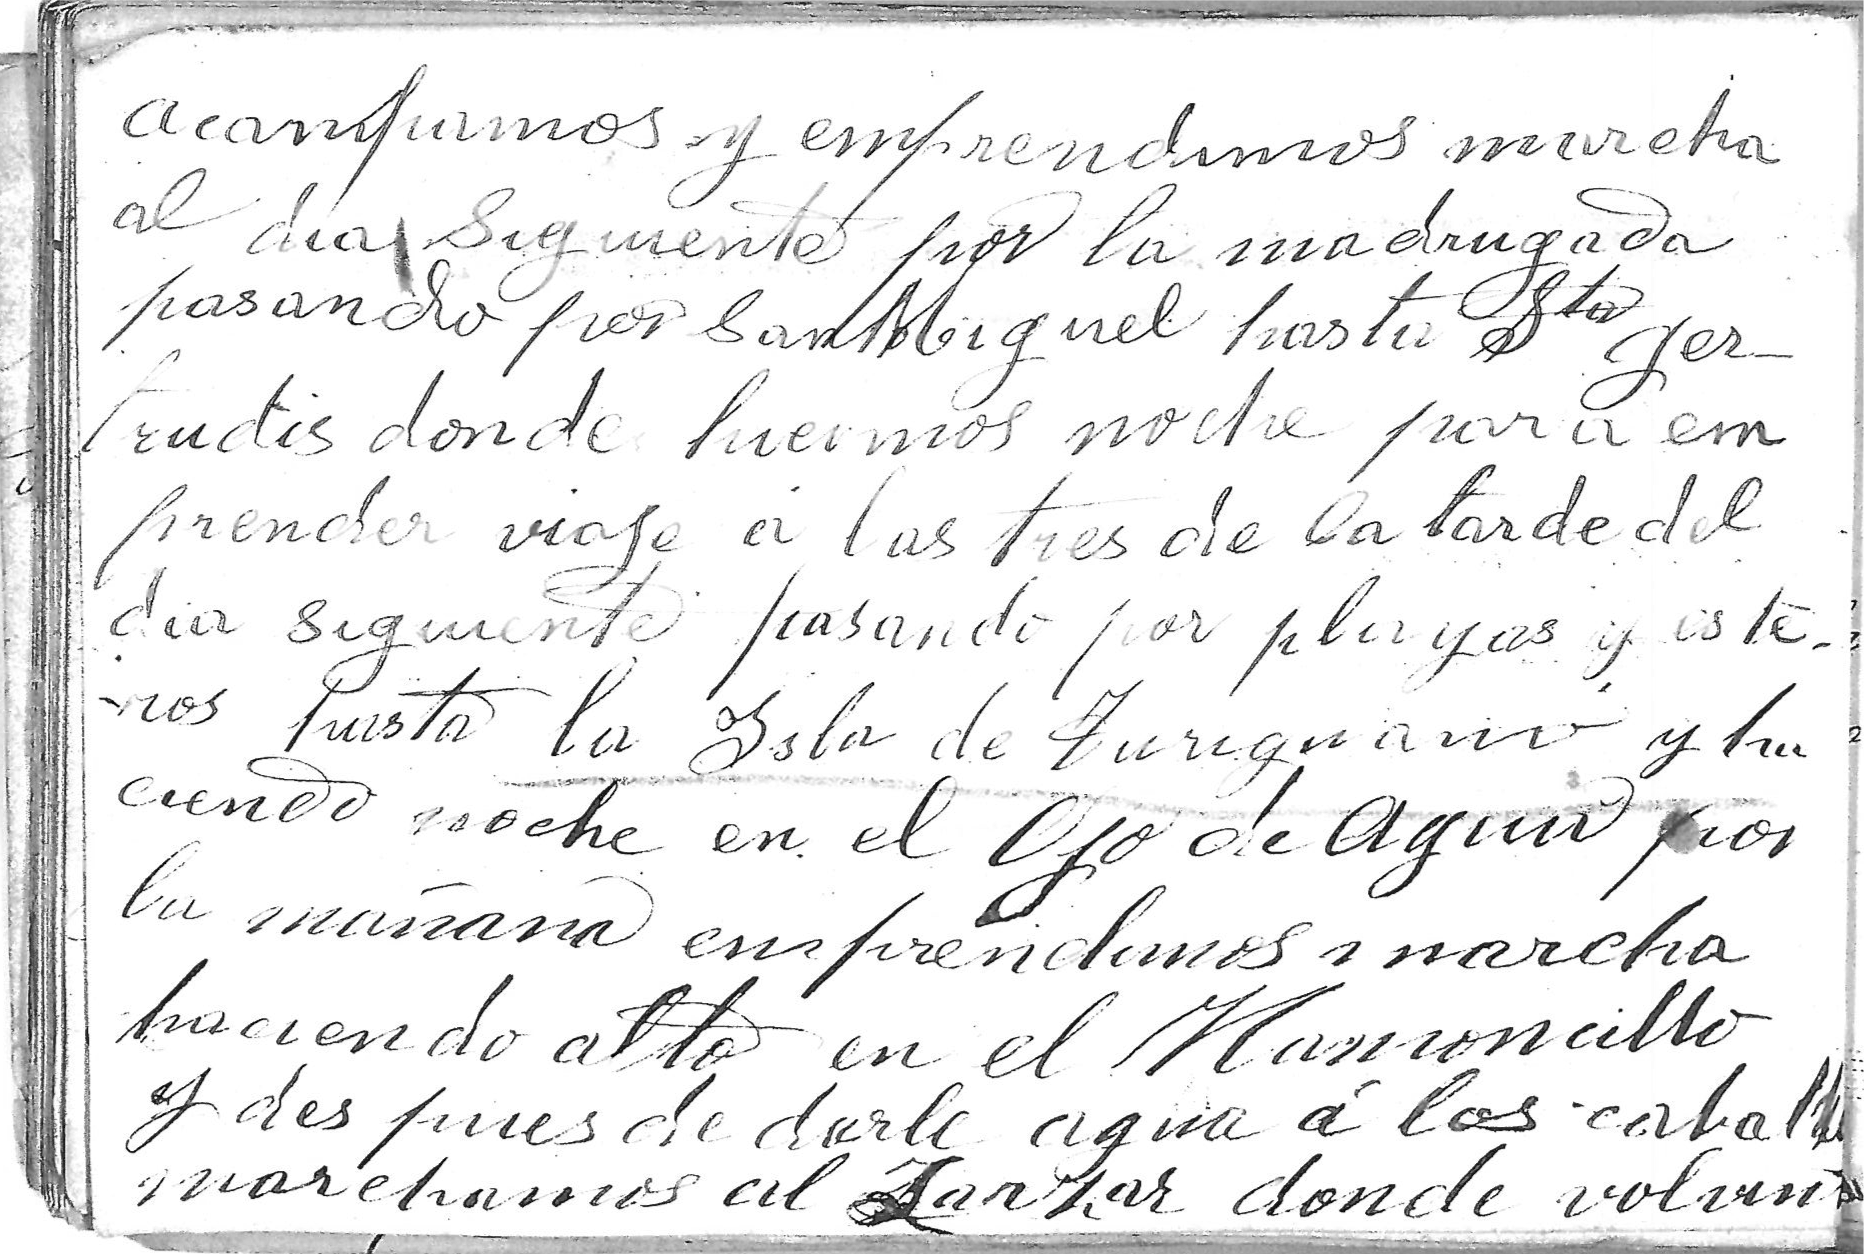 acampamos y emprendimos marcha
al dia siguiente por la madrugada
pasando por San Miguel hasta Sta Ger-
trudis donde hicimos noche para em
prender viaje á las tres de la tarde del
dia siguiente pasando por playas y este-
ros hasta la Isla de Turiguanó y ha
ciendo noche en el Ojo de Agua por
la mañana emprendimos marcha
haciendo alto en el Mamoncillo
y des pues de darle agua á los caballos
marchamos al Zarzar donde